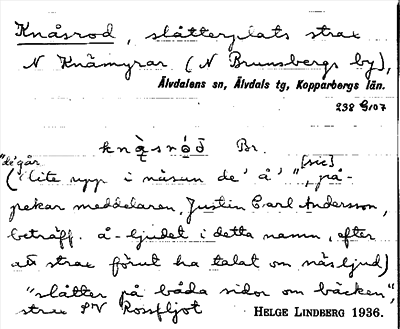 Knåsrod, slåtterplats strax
N Knåmyrar (N Brunsbergs by),
Älvdalens sn, Älvdals tg, Kopparbergs län.
238 G107
Br.
"de'går [sic]
(lite upp i näsun de' å'", på-
pekar meddelaren, Justin Carl Andersson,
beträff. å-ljudet i detta namn, efter
att strax förut ha talat om näsljud)
"slåtter på båda sidor om bäcken",
strax SV Rossfljot
HELGE LINDBERG 1936.